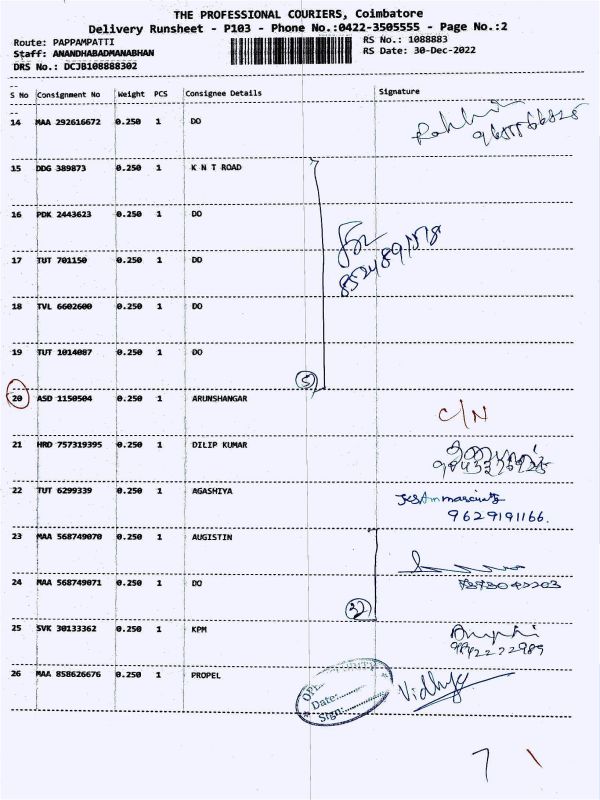 THE PROFESSIONAL COURIERS, Coimbatore
Delivery Runsheet - P103 - Phone No.:0422-3505555 - Page No.:2
Route: PAPPAMPATTI
RS No.: 1088883
Staff: ANANDHABADMANABHAN
RS Date: 30-Dec-2022
DRS No.: DCJB108888302
S No Consignment No Weight PCS Consignee Details Signature
14 MAA 292616672 0.250 1 DO
15 DDG 389873 0.250 1 K N T ROAD
16 PDK 2443623 0.250 1 DO
17 TUT 701150 0.250 1 DO
18 TVL 6602600 0.250 1 DO
19 TUT 1014087 0.250 1 DO
5
20 ASD 1150504 0.250 1 ARUNSHANGAR C/N
21 HRD 757319395 0.250 1 DILIP KUMAR
22 TUT 6299339 0.250 1 AGASHIYA
9629191166.
23 MAA 568749070 0.250 1 AUGISTIN
24 MAA 568749071 0.250 1 DO
25 SVK 30133362 0.250 1 KPM
26 MAA 858626676 0.250 1 PROPEL Vidhya
Date:
Sign:
7 \